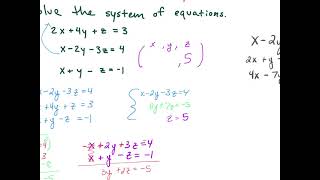 olve the system of equations.
2x+4y+z=3
x-2y-3z=4
x+y-z=-1
(x, y, z
, 5)
x-2y
2x+y
4x-7y
-2y-3z=4
+4y+z=3
+y-z=-1
x-2y-3z=4
z=5
-x+2y+3z=-4
x+y-z=-1
3y+2z=-5